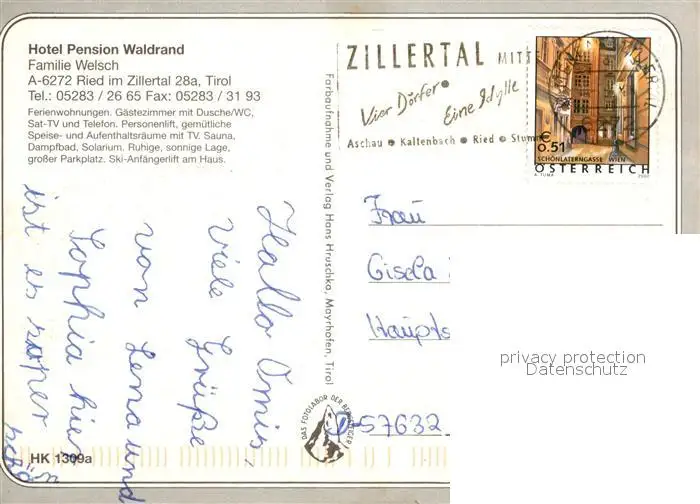 Hotel Pension Waldrand
Familie Welsch
A-6272 Ried im Zillertal 28a, Tirol
Tel.: 05283 / 26 65 Fax: 05283 / 31 93
Ferienwohnungen. Gästezimmer mit Dusche/WC,
Sat-TV und Telefon. Personenlift, gemütliche
Speise- und Aufenthaltsräume mit TV. Sauna,
Dampfbad, Solarium. Ruhige, sonnige Lage,
großer Parkplatz. Ski-Anfängerlift am Haus.
Hallo Omis,
viele
Grüße
von Lena und
Sophia hier
ist es super
schön
HK 1309a
Farbaufnahme und Verlag Hans Hruschka, Mayrhofen, Tirol
DAS FOTOLABOR DER BERGSTEIGER
ZILLERTAL MITTE
Vier Dörfer
Eine Idylle
Aschau Kaltenbach Ried Stumm
€
0.51
SCHÖNLATERNGASSE WIEN
ÖSTERREICH
A. TUMA 2002
Frau
Gisela
Haupts
D-57632
privacy protection
Datenschutz